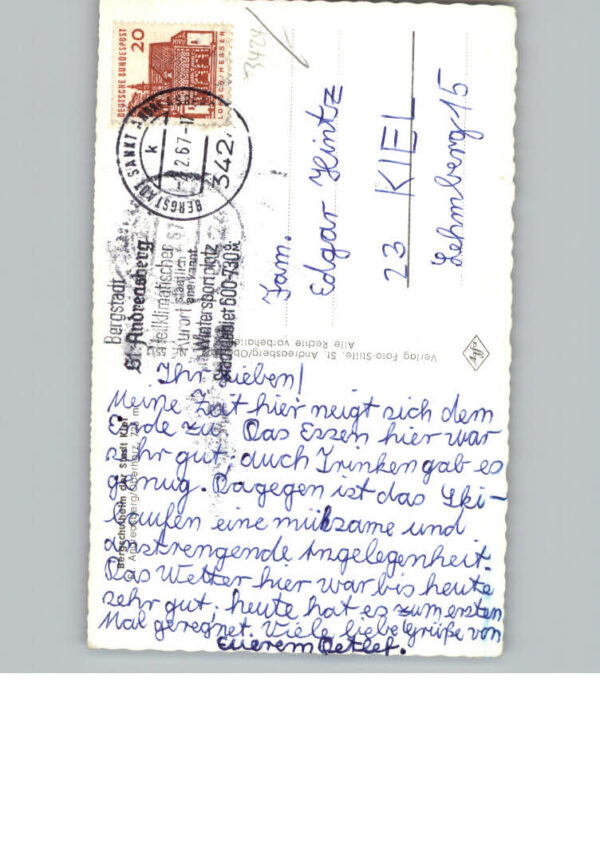 Ihr Lieben!
Meine Zeit hier neigt sich dem
Ende zu. Das Essen hier war
sehr gut, auch Trinken gab es
genug. Dagegen ist das Ski-
laufen eine mühsame und
anstrengende Angelegenheit.
Das Wetter hier war bis heute
sehr gut, heute hat es zum ersten
Mal geregnet. Viele liebe Grüße von
Euerem Detlef.
Fam.
Edgar Hintz
23 KIEL
Lehmberg 15
3424
DEUTSCHE BUNDESPOST
20
LORSCH/HESSEN
BERGSTADT SANKT ANDREASBERG
k
2.2.67-1
342
Bergstadt
St. Andreasberg
heilklimatischer
Kurort staatlich
anerkannt
Wintersportplatz
Skigebiet 600-730 ü.M.
Verlag Foto-Stille, St. Andreasberg/Ob
Alle Rechte vorbehalten
Agfa
Bergschulheim der Stadt Kiel
St. Andreasberg/Oberharz, 728 m